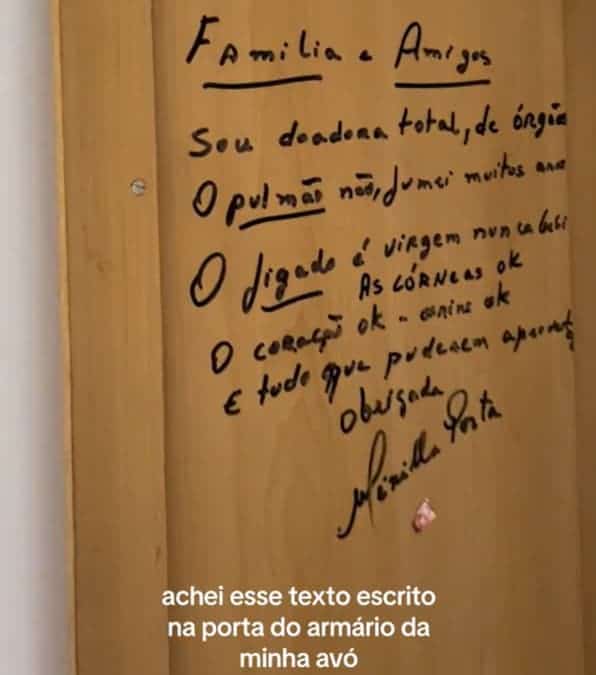 FAmilia e Amigos
Sou doadora total, de órgão
O pulmão não, fumei muitos anos
O figado é virgem nunca bebi
As CÓRNEAS ok
O CORAÇÃO ok - rins ok
E tudo que puderem
Obrigada
achei esse texto escrito
na porta do armário da
minha avó